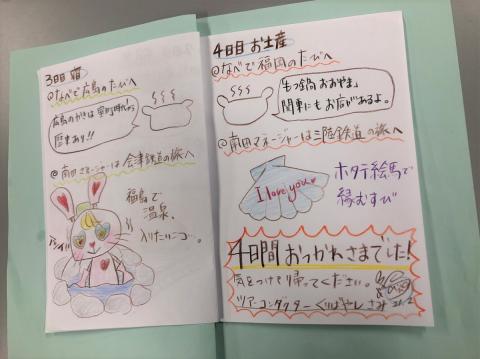 3日目 宿
@なべで広島のたびへ
広島のかきは室町時代から
歴史あり!!
@南田マネージャーは会津鉄道の旅へ
福島で
温泉、
入りたいニコ…。
4日目 お土産
@なべで福岡のたびへ
「もつ鍋 おおやま」
関東にもお店があるよ。
@南田マネージャーは三陸鉄道の旅へ
I love you
ホタテ絵馬で
縁むすび
4日間おつかれさまでした!
気をつけて帰ってください。
ツアーコンダクター くりばやし さみ